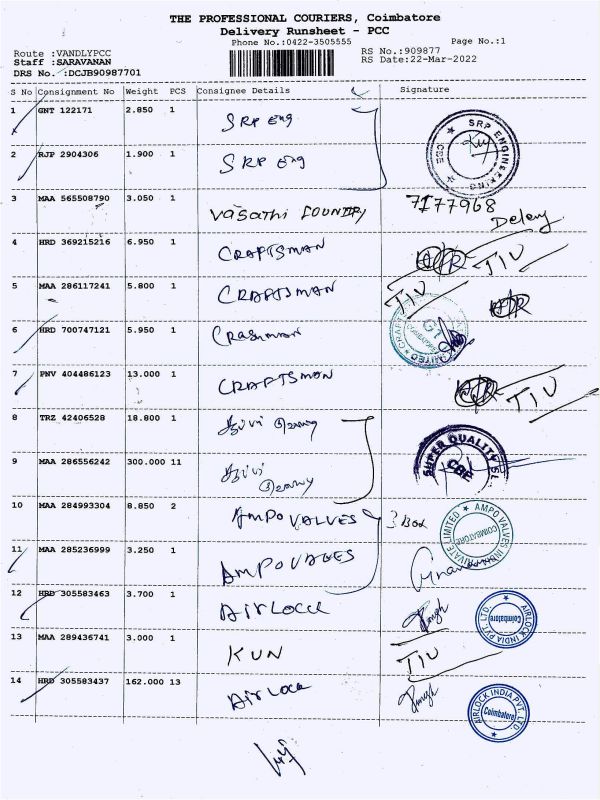 THE PROFESSIONAL COURIERS, Coimbatore
Delivery Runsheet - PCC
Phone No.:0422-3505555 Page No.:1
Route :VANDLYPCC RS No.:909877
Staff :SARAVANAN RS Date:22-Mar-2022
DRS No. :DCJB90987701
S No Consignment No Weight PCS Consignee Details Signature
1 GNT 122171 2.850 1 SRP Eng
SRP ENGINEERING CBE
2 RJP 2904306 1.900 1 SRP Eng
3 MAA 565508790 3.050 1 Vasathi FOUNDRY 7177968
Delay
4 HRD 369215216 6.950 1 CRAFTSMAN TIV
5 MAA 286117241 5.800 1 CRAFTSMAN TIV
6 HRD 700747121 5.950 1 Crasman
7 PNV 404486123 13.000 1 CRAFTSMAN TIV
8 TRZ 42406528 18.800 1
SUPER QUALITY CBE
9 MAA 286556242 300.000 11
10 MAA 284993304 8.850 2 AMPO VALVES 3 Box
AMPO VALVES INDIA PRIVATE LIMITED COIMBATORE
11 MAA 285236999 3.250 1 AMPO VALVES
12 HRD 305583463 3.700 1 AIRLOCK
AIRLOCK INDIA PVT. LTD. Coimbatore
13 MAA 289436741 3.000 1 KUN TIV
14 HRD 305583437 162.000 13 AIRLOCK
AIRLOCK INDIA PVT. LTD. Coimbatore